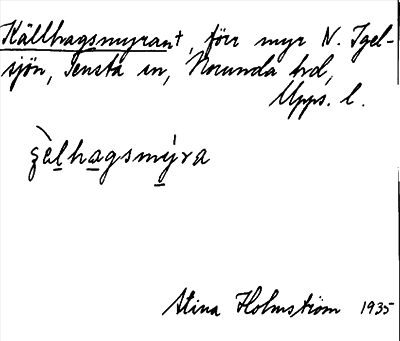 Källhagsmyran†, förr myr N. Igel-
sjön, Tensta sn, Norunda hd,
Upps. l.
ʒèlhagsmýra
Stina Holmström 1935